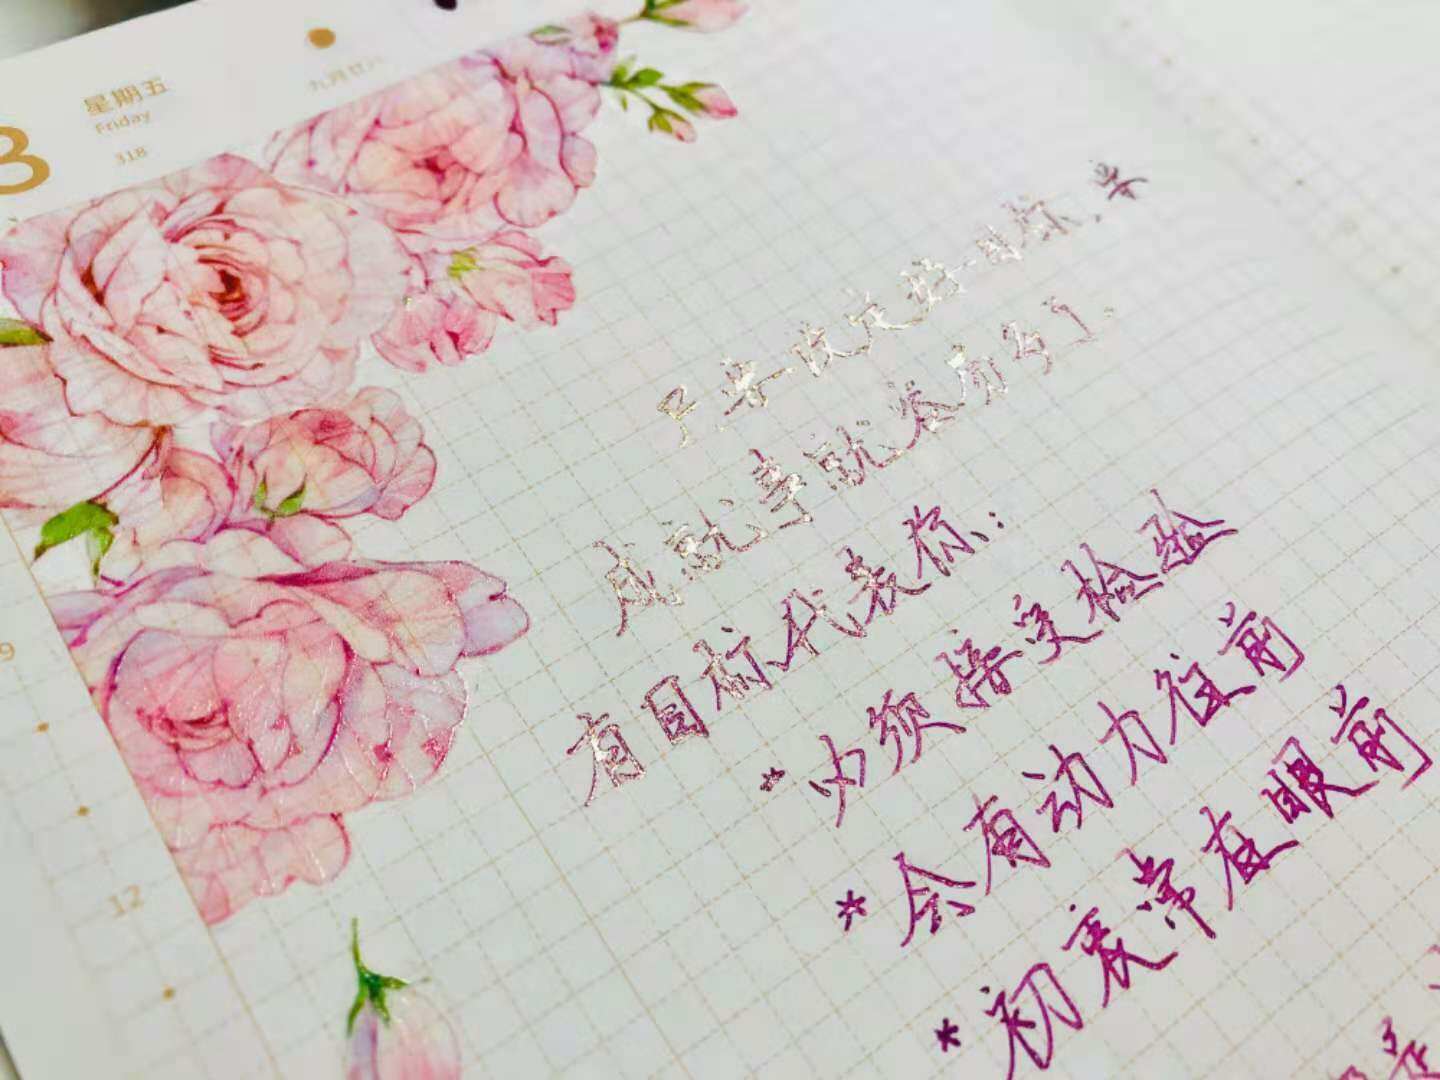 3
星期五
Friday
318
九月廿八
只要一设定好一目标,要
成就事就容易多了.
有目标代表你:
*必须接受检验
*会有动力往前
*初衷常在眼前
9
12